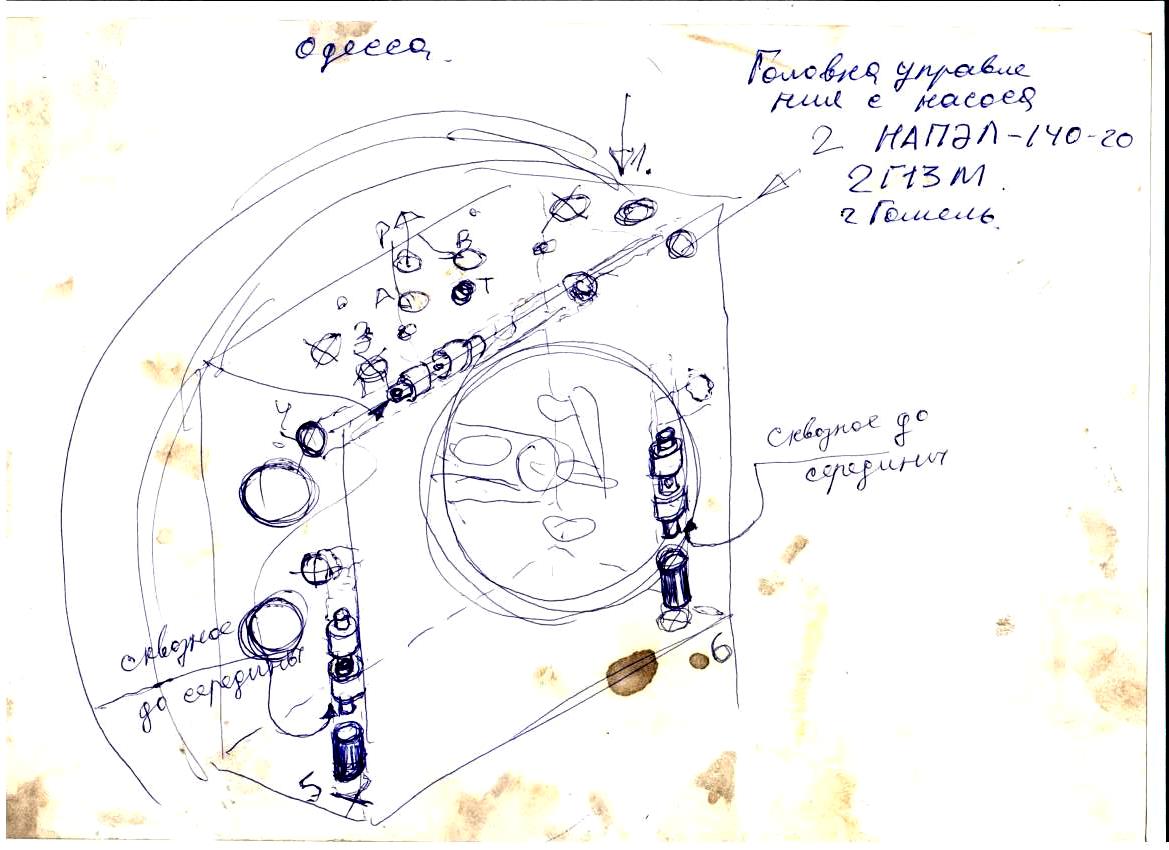 Одесса
Головка управле
ния с насоса
2 НАПЭЛ-140-20
2Г13М
г Гомель
1.
P
B
A
T
3
4
сквозное до
середины
сквозное
до середины
5
6